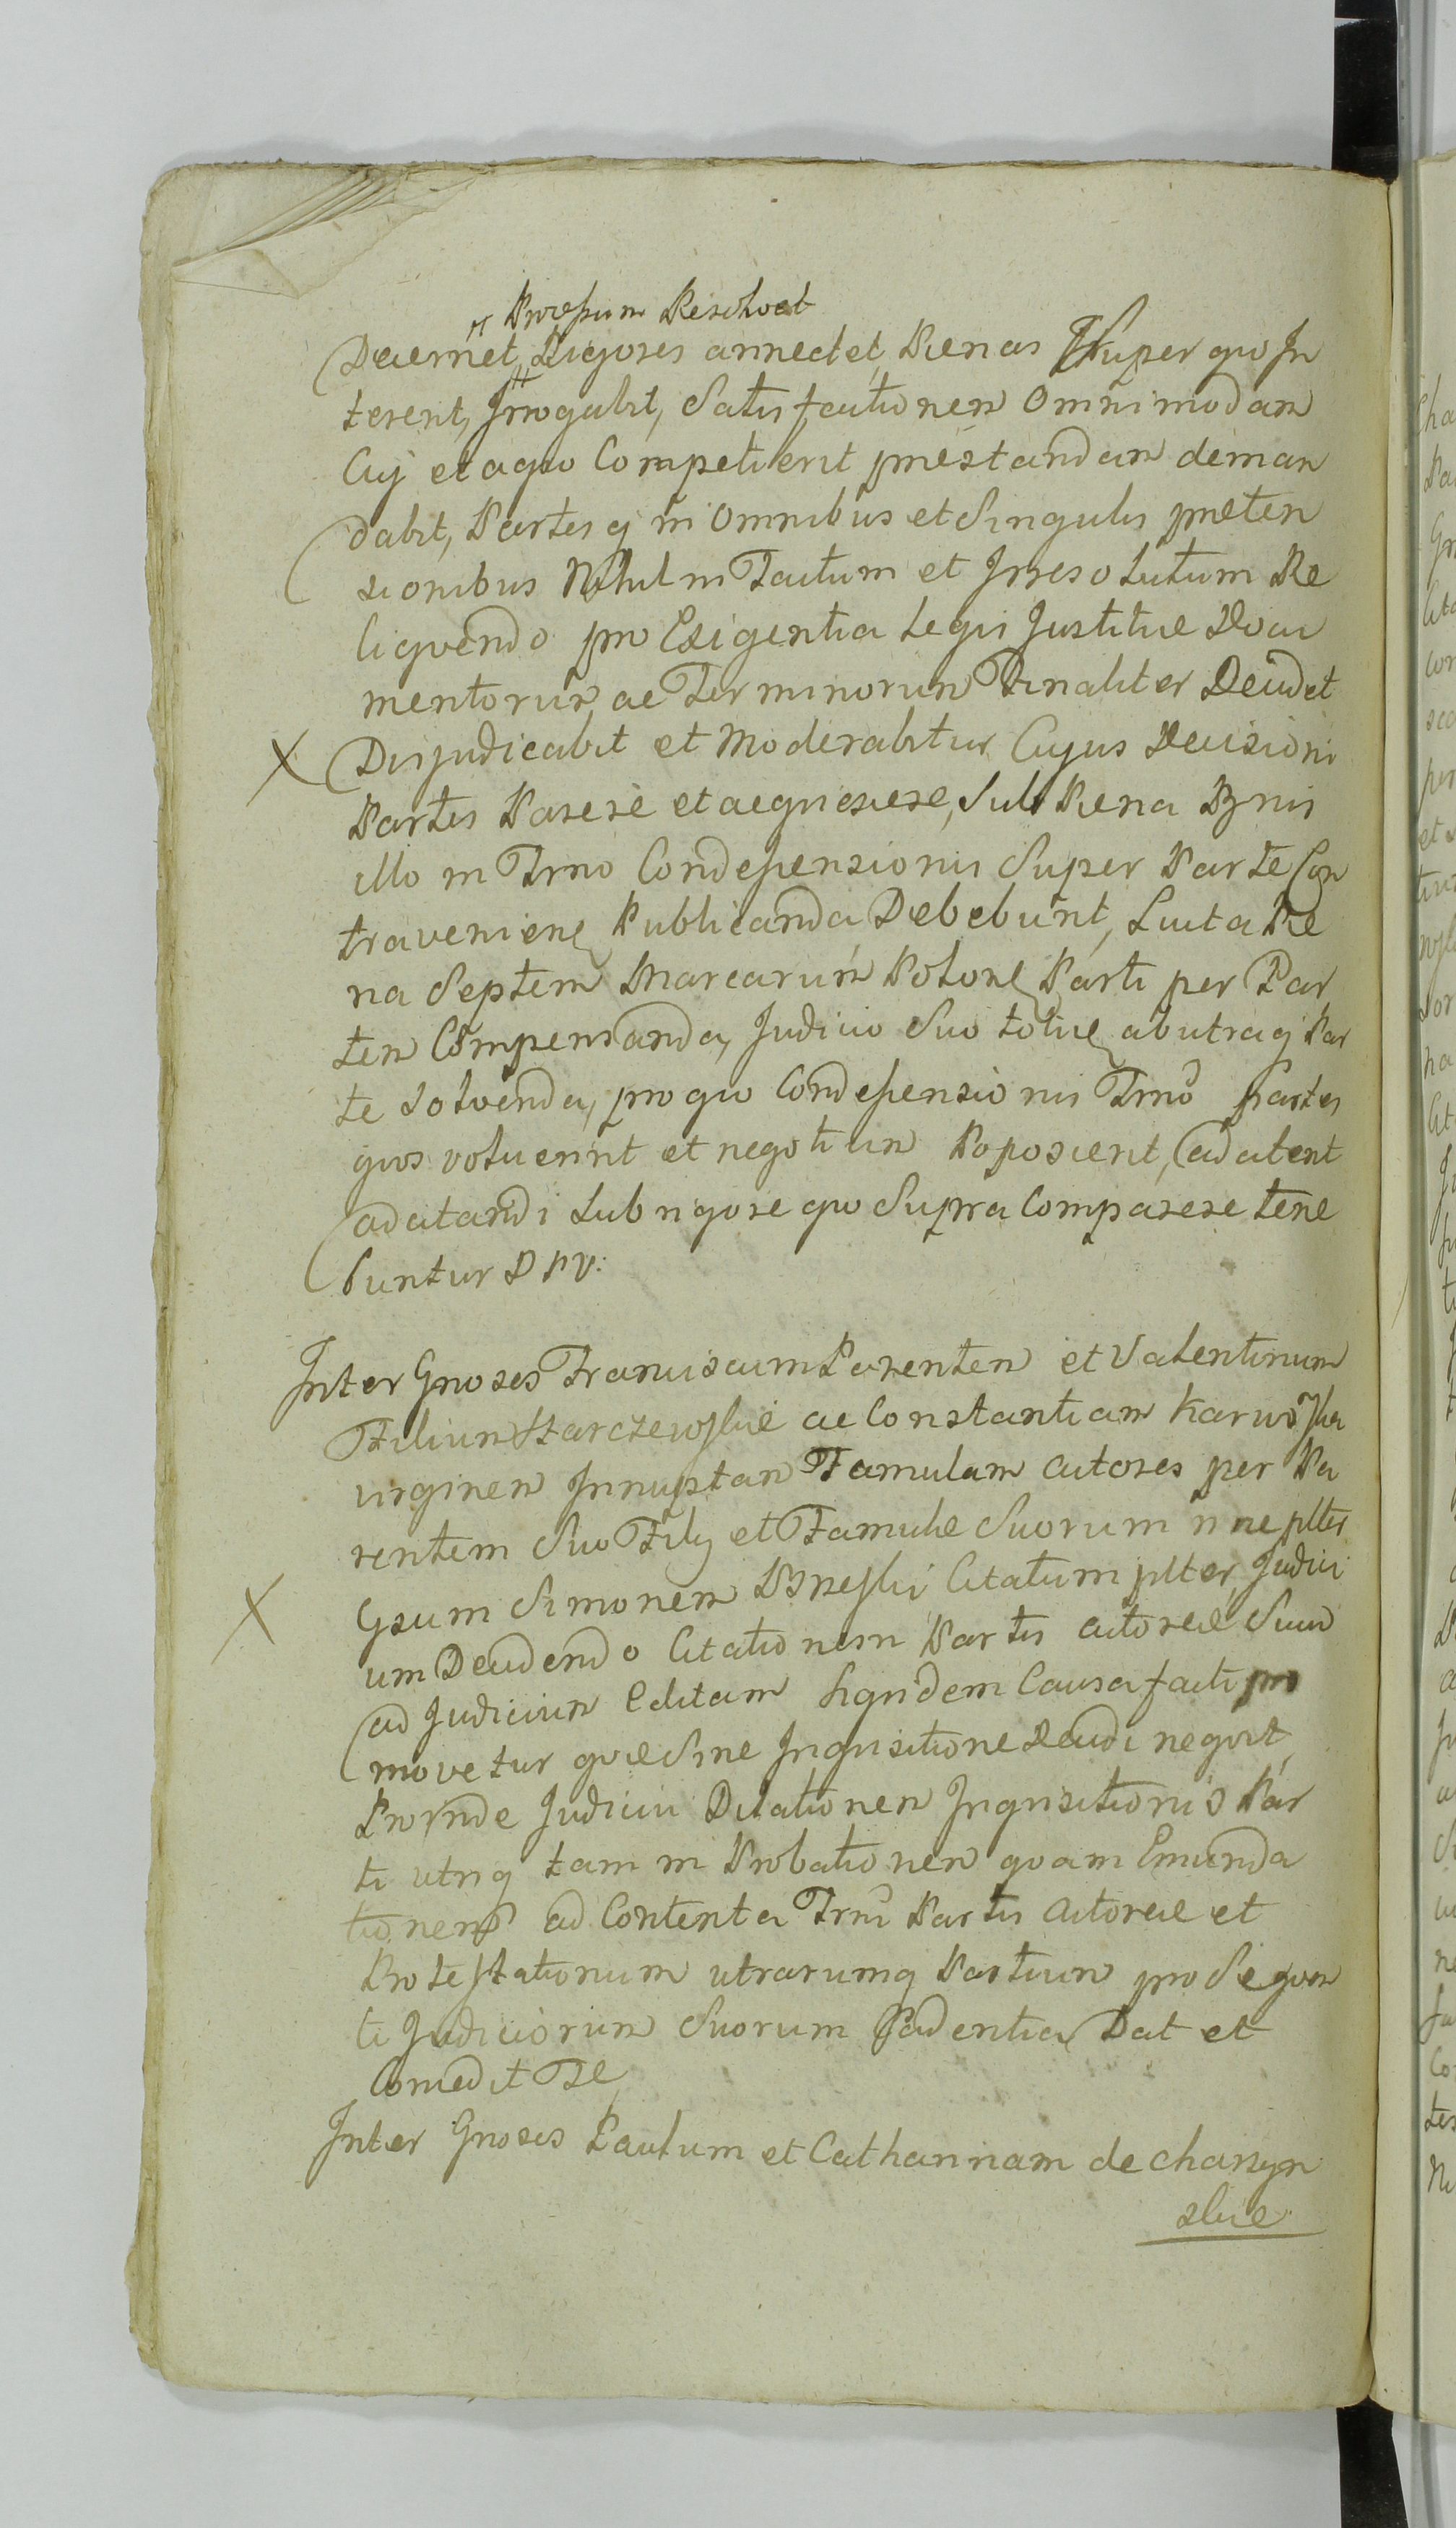 Processum Resolvet
Decernet, Rigores annectet, Pienas Super quo In
tererit, Irrogabit, Satisfactionem Omnimodam
Cuj et aquo Competierit præstandam deman
dabit, Partes q in Omnibus et Singulis præten
sionibus Nihil in Tactum et Irresolutum Re
liqvendo pro Exigentia Legis Justitiæ Docu
mentorum ac Terminorum Finaliter Decidet
X Disjudicabit et Moderabitur Cujus Decisioni
Partes Parere et acquiescere, Sub Piena Bnis
illo in Trno Condescensionis Super Parte Con
travenien Publicanda Debebunt, Luita Pie
na Septem Marcarum Polon Parti per Par
tem Compensanda, Judicio Suo toties ab utraq Par
te Solvenda, pro quo Condescensionis Trno Partes
quos voluerint et negotium Poposcerit, adcitent
adcitandi Sub rigore quo Supra Comparere tene
buntur D P V:
Inter Gnosos Franciscum Parentem et Valentinum
Filium Starczewskie ac Constantiam Karwoska
virginem Innuptam Famulam Actores per Pa
rentem Suo Filij et Famulæ Suorum nne plter
X Gsum Simonem Brzeski Citatum plter, Judici
um Decidendo Citationem Partis Actoreæ Suum
ad Judicium Editam Siquidem Causa facti pro
movetur quæ Sine Inquisitione Decidi neqvit
Proinde Judicium Dilationem Inquisitionis Par
ti utriq tam in Probationem quam Emunda
tionem ad Contenta Trni Partis Actoreæ et
Protestationum utrarumq Partium pro Sequen
ti Judiciorum Suorum Cadentia Dat et
Concedit
Inter Gnosos Paulum et Catharinam de Charzyn
skie